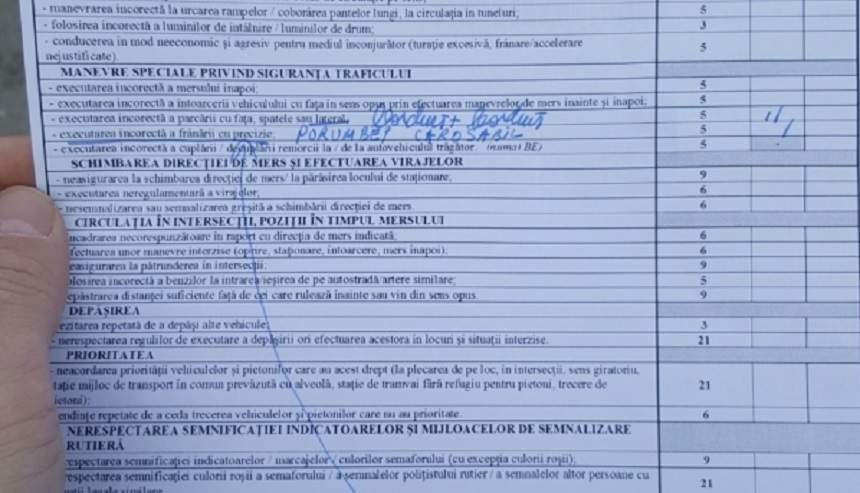 - manevrarea incorectă la urcarea rampelor / coborârea pantelor lungi, la circulația în tuneluri; 5
- folosirea incorectă a luminilor de întâlnire / luminilor de drum; 3
- conducerea în mod neeconomic și agresiv pentru mediul înconjurător (turație excesivă, frânare/accelerare 5
nejustificate).
MANEVRE SPECIALE PRIVIND SIGURANȚA TRAFICULUI
- executarea incorectă a mersului înapoi; 5
- executarea incorectă a întoarcerii vehiculului cu fața în sens opus prin efectuarea manevrelor de mers înainte și înapoi; 5
- executarea incorectă a parcării cu fața, spatele sau lateral; 5
- executarea incorectă a frânării cu precizie; PORUMBEI CAROSABIL 5
- executarea incorectă a cuplării / decuplării remorcii la / de la autovehiculul trăgător. (numai BE) 5 -
SCHIMBAREA DIRECȚIEI DE MERS ȘI EFECTUAREA VIRAJELOR
- neasigurarea la schimbarea direcției de mers/ la părăsirea locului de staționare; 9
- executarea neregulamentară a virajelor; 6
- nesemnalizarea sau semnalizarea greșită a schimbării direcției de mers. 6
CIRCULAȚIA ÎN INTERSECȚII, POZIȚII ÎN TIMPUL MERSULUI
ncadrarea necorespunzătoare în raport cu direcția de mers indicată; 6
fectuarea unor manevre interzise (oprire, staționare, întoarcere, mers înapoi); 6
easigurarea la pătrunderea în intersecții; 9
olosirea incorectă a benzilor la intrarea/ieșirea de pe autostradă/artere similare; 5
epăstrarea distanței suficiente față de cei care rulează înainte sau vin din sens opus. 9
DEPĂȘIREA
ezitarea repetată de a depăși alte vehicule; 3
- nerespectarea regulilor de executare a depășirii ori efectuarea acestora în locuri și situații interzise. 21
PRIORITATEA
- neacordarea priorității vehiculelor și pietonilor care au acest drept (la plecarea de pe loc, în intersecții, sens giratoriu,
tație mijloc de transport în comun prevăzută cu alveolă, stație de tramvai fără refugiu pentru pietoni, trecere de 21
ietoni);
endințe repetate de a ceda trecerea vehiculelor și pietonilor care nu au prioritate. 6
NERESPECTAREA SEMNIFICAȚIEI INDICATOARELOR ȘI MIJLOACELOR DE SEMNALIZARE
RUTIERĂ
respectarea semnificației indicatoarelor / marcajelor / culorilor semaforului (cu excepția culorii roșii); 9
respectarea semnificației culorii roșii a semaforului / a semnalelor polițistului rutier / a semnalelor altor persoane cu 21
legale similare